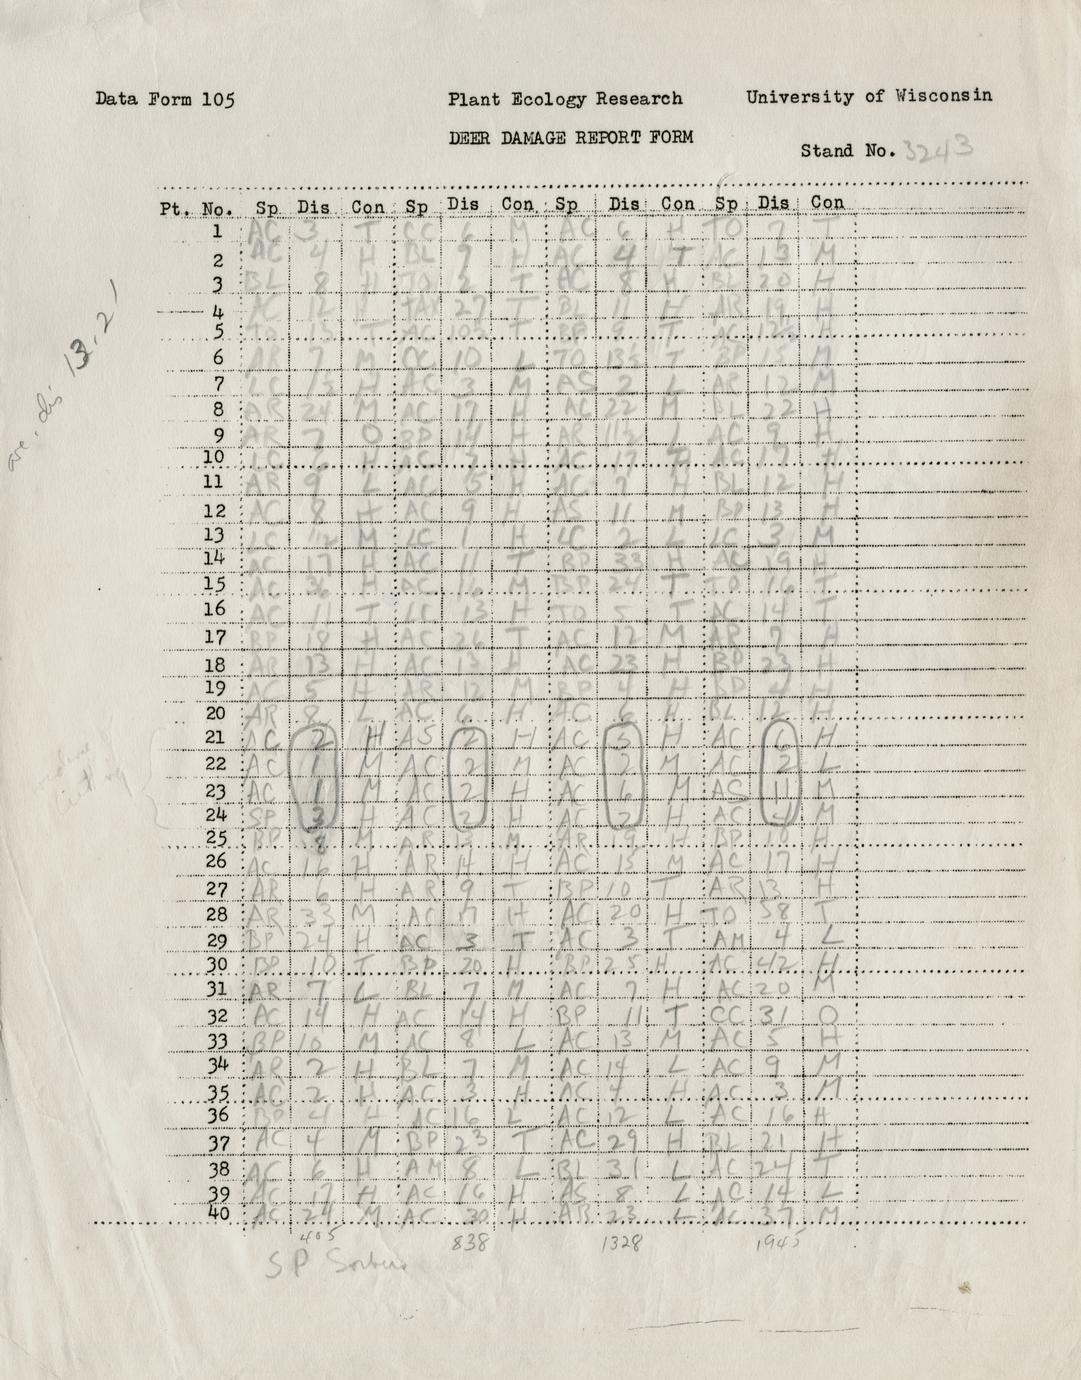 Data Form 105 Plant Ecology Research University of Wisconsin
DEER DAMAGE REPORT FORM
Stand No. 3243
Pt. No. Sp Dis Con Sp Dis Con Sp Dis Con Sp Dis Con
1 AC 3 T CC 6 M AC 6 H TO 7 T
2 AC 4 H BL 9 H AC 4 T AC 13 M
3 BL 8 H TO 2 T AC 8 H BL 20 H
4 AC 12 H 27 T BL 11 H AR 19 H
5 TO 15 T AC T BP 9 T AC H
6 AR 7 M 10 L TO T BP 15 M
7 H AC 3 M AS 2 L AR 12 M
8 AR 24 M AC 17 H AC 22 M BL 22 H
9 AR 7 O BP 14 H AR AC 9 H
10 H AC H AC 17 H AC 17 H
11 AR 9 L AC 15 H AC 7 H BL 12 H
12 AC 8 H AC 9 H AS 11 M BP 13 H
13 M 1 H 2 L 3 M
14 AC 17 H AC 11 T BP 33 H AC 19 H
15 AC 36 H AC 16 M BP 24 T TO 16 T
16 AC 11 T 13 H TO 5 T AC 14 T
17 BP 18 H AC 26 T AC 12 M AR 7 H
18 AR 13 H AC 13 H AC 23 H BP 23 H
19 AC 5 H AR 12 M BP 4 H BP 4 H
20 AR 8 L AC 6 H AC 6 H BL 12 H
21 AC 2 H AS 2 H AC 5 H AC 6 H
22 AC 1 M AC 2 M AC 2 M AC 2 L
23 AC 1 M AC 2 H AC 6 M AS 11 M
24 SP 3 H AC 2 H AC 2 H AC 4 M
25 BP 8 M AR 3 M AR 19 H BP 11 H
26 AC 16 H AR 14 H AC 15 M AC 17 H
27 AR 6 H AR 9 T BP 10 T AR 13 H
28 AR 33 M AC 17 H AC 20 H TO 58 T
29 BP 24 H AC 3 T AC 3 T AM 4 L
30 BP 10 T BP 20 H BP 25 H AC 42 H
31 AR 7 L BL 7 M AC 7 H AC 20 M
32 AC 14 H AC 14 H BP 11 T CC 31 O
33 BP 10 M AC 8 L AC 13 M AC 5 H
34 AR 2 H BL 7 M AC 14 L AC 9 M
35 AC 2 H AC 3 H AC 4 H AC 3 M
36 BP 4 H AC 16 L AC 12 L AC 16 H
37 AC 4 M BP 23 T AC 29 H BL 21 H
38 AC 6 H AM 8 L BL 31 L AC 24 T
39 AC 17 H AC 16 H AS 8 L AC 14 L
40 AC 24 M AC 30 H AR 23 L AC 37 M
405 838 1328 1945
SP Sorbus
ave. dis 13.21